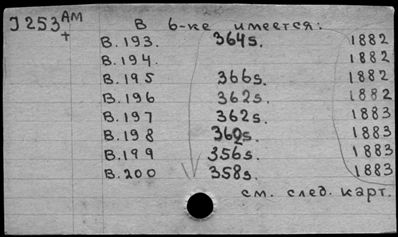 J 253 AM
+
В 6-ке имеется:
B. 193. 364s. 1882
B. 194. 1882
B. 195 366s. 1882
B. 196 362s. 1882
B. 197 362s. 1883
B. 198 360s. 1883
B. 199 356s. 1883
B. 200 358s. 1883
см. след. карт.